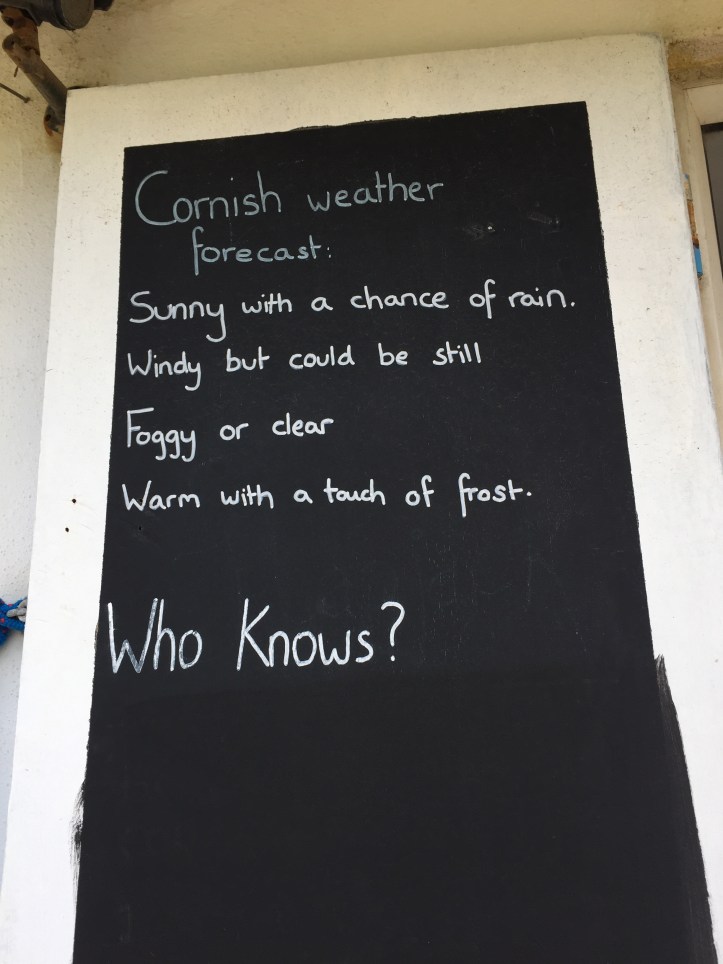 Cornish weather
forecast:
Sunny with a chance of rain.
Windy but could be still
Foggy or clear
Warm with a touch of frost.
Who Knows?